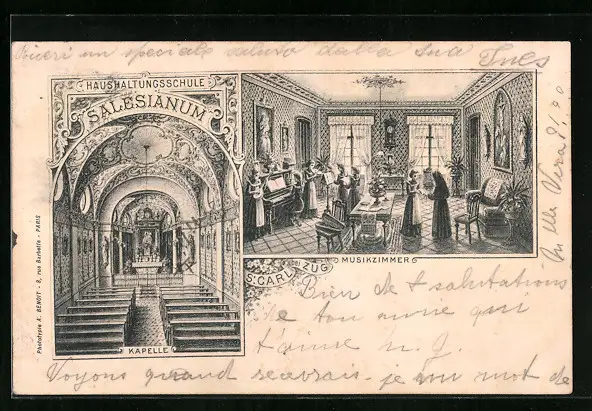 Ricevi un speciale saluto dalla tua
Ines
HAUSHALTUNGSSCHULE
SALESIANUM
KAPELLE
MUSIKZIMMER
S: CARL bei ZUG
Phototypie A. BENOIT - 8, rue Barbette - PARIS
Bien de salutations
de ton amie qui
t'aime
Voyons quand recevrais-je un mot de